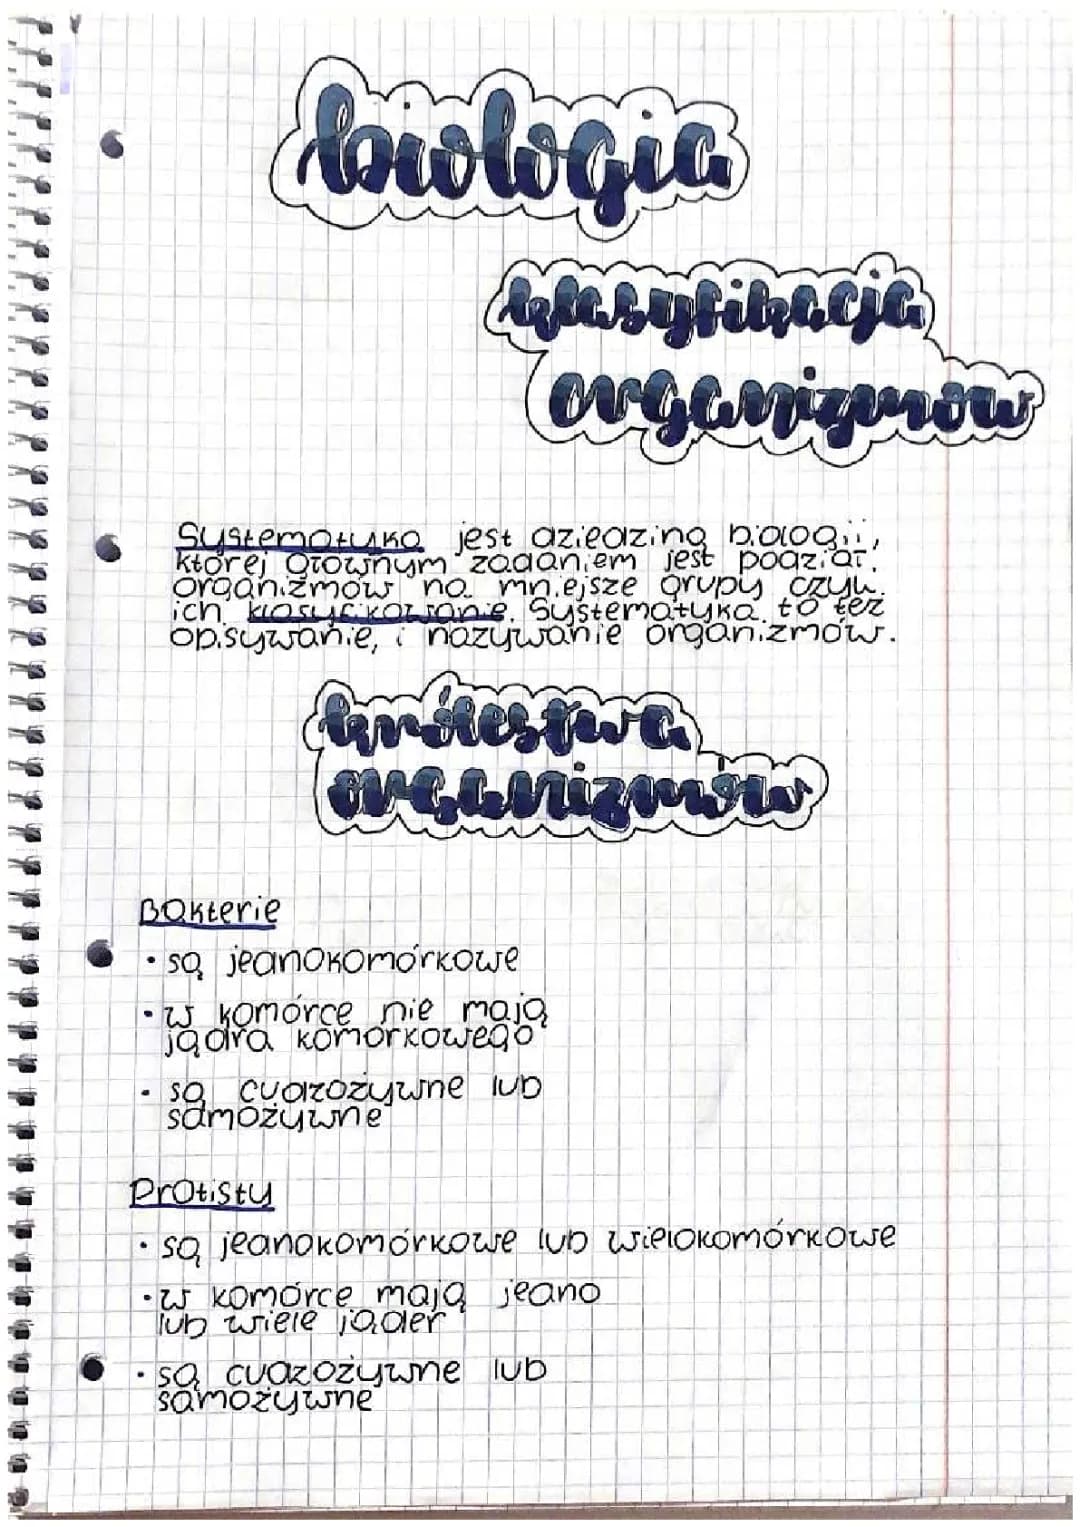 biologia
klasyfikacja
organizmów
Systematyka jest dziedziną biologii,
której głównym zadaniem jest podział
organizmów na mniejsze grupy czyli
ich klasyfikowanie. Systematyka to też
opisywanie, i nazywanie organizmów.
królestwa
organizmów
Bakterie
• są jednokomórkowe
• w komórce nie mają
jądra komórkowego
• są cudzożywne lub
samożywne
Protisty
• są jednokomórkowe lub wielokomórkowe
• w komórce mają jedno
lub wiele jąder
• są cudzożywne lub
samożywne